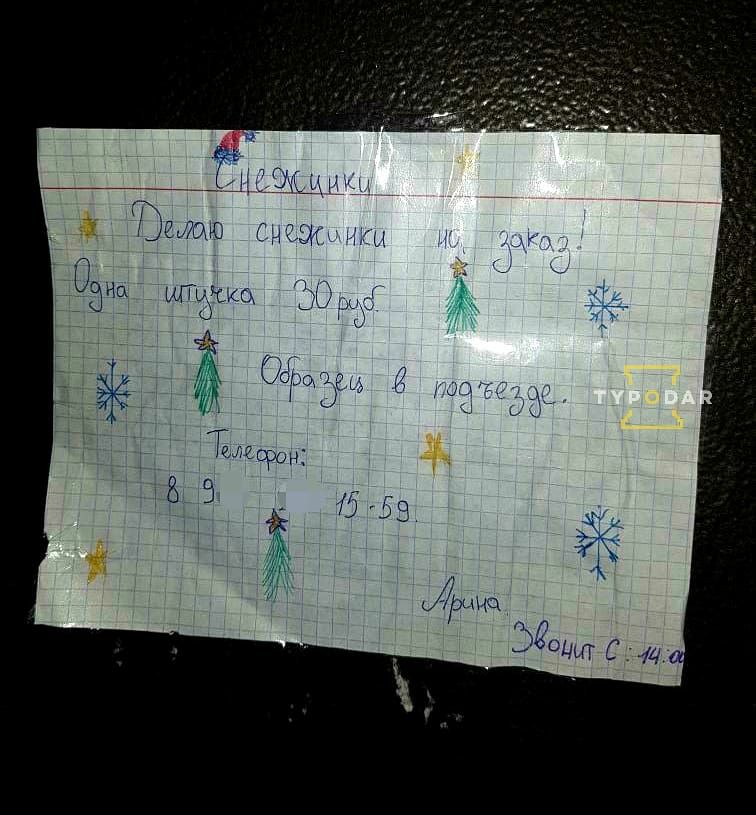 Снежинки
Делаю снежинки на заказ!
Одна штучка 30 руб.
Образец в подъезде.
TYPODAR
Телефон:
8 9 15-59.
Арина
Звонит С: 14:00